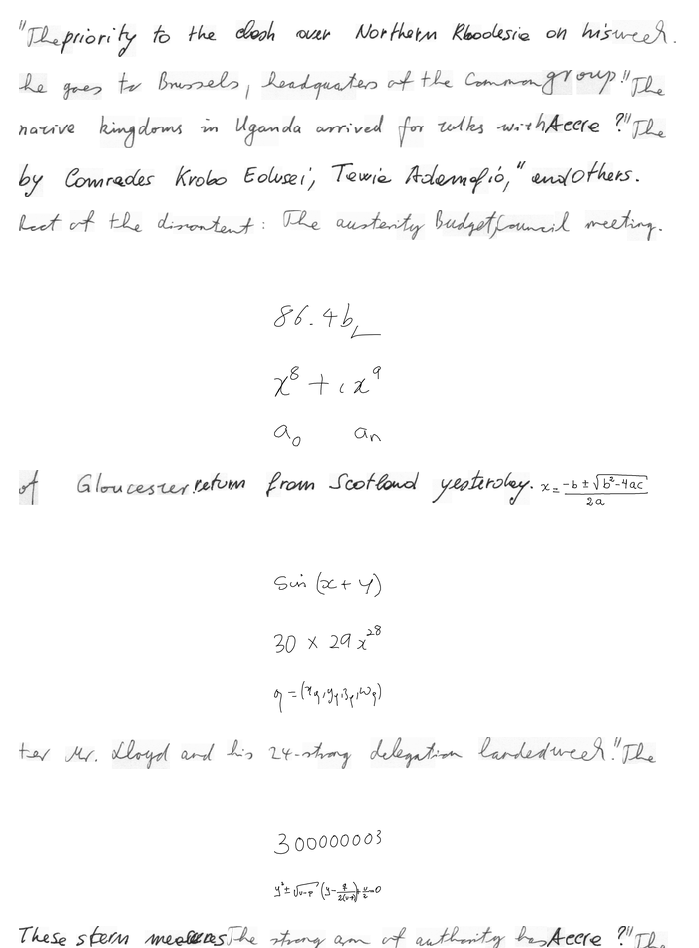 "The priority to the clash over Northern Rhodesia on his week.
he goes to Brussels, headquaters of the Common group!" The
native kingdoms in Uganda arrived for talks with Accre ?" The
by Comrades Krobo Edusei, Tawia Adamafio," and others.
of the discontent: The austerity Budget, Council meeting.
86.4b
x⁸ + ix⁹
a₀ aₙ
of Gloucester return from Scotland yesterday. x = (-b ± √(b²-4ac))/2a
sin (x + y)
30 × 29x²⁸
q = (x_q, y_q, z_q, w_q)
ter Mr. Lloyd and his 24-strong delegation landed week." The
300000003
These stern measures The strong arm of authority has Accre ?" The